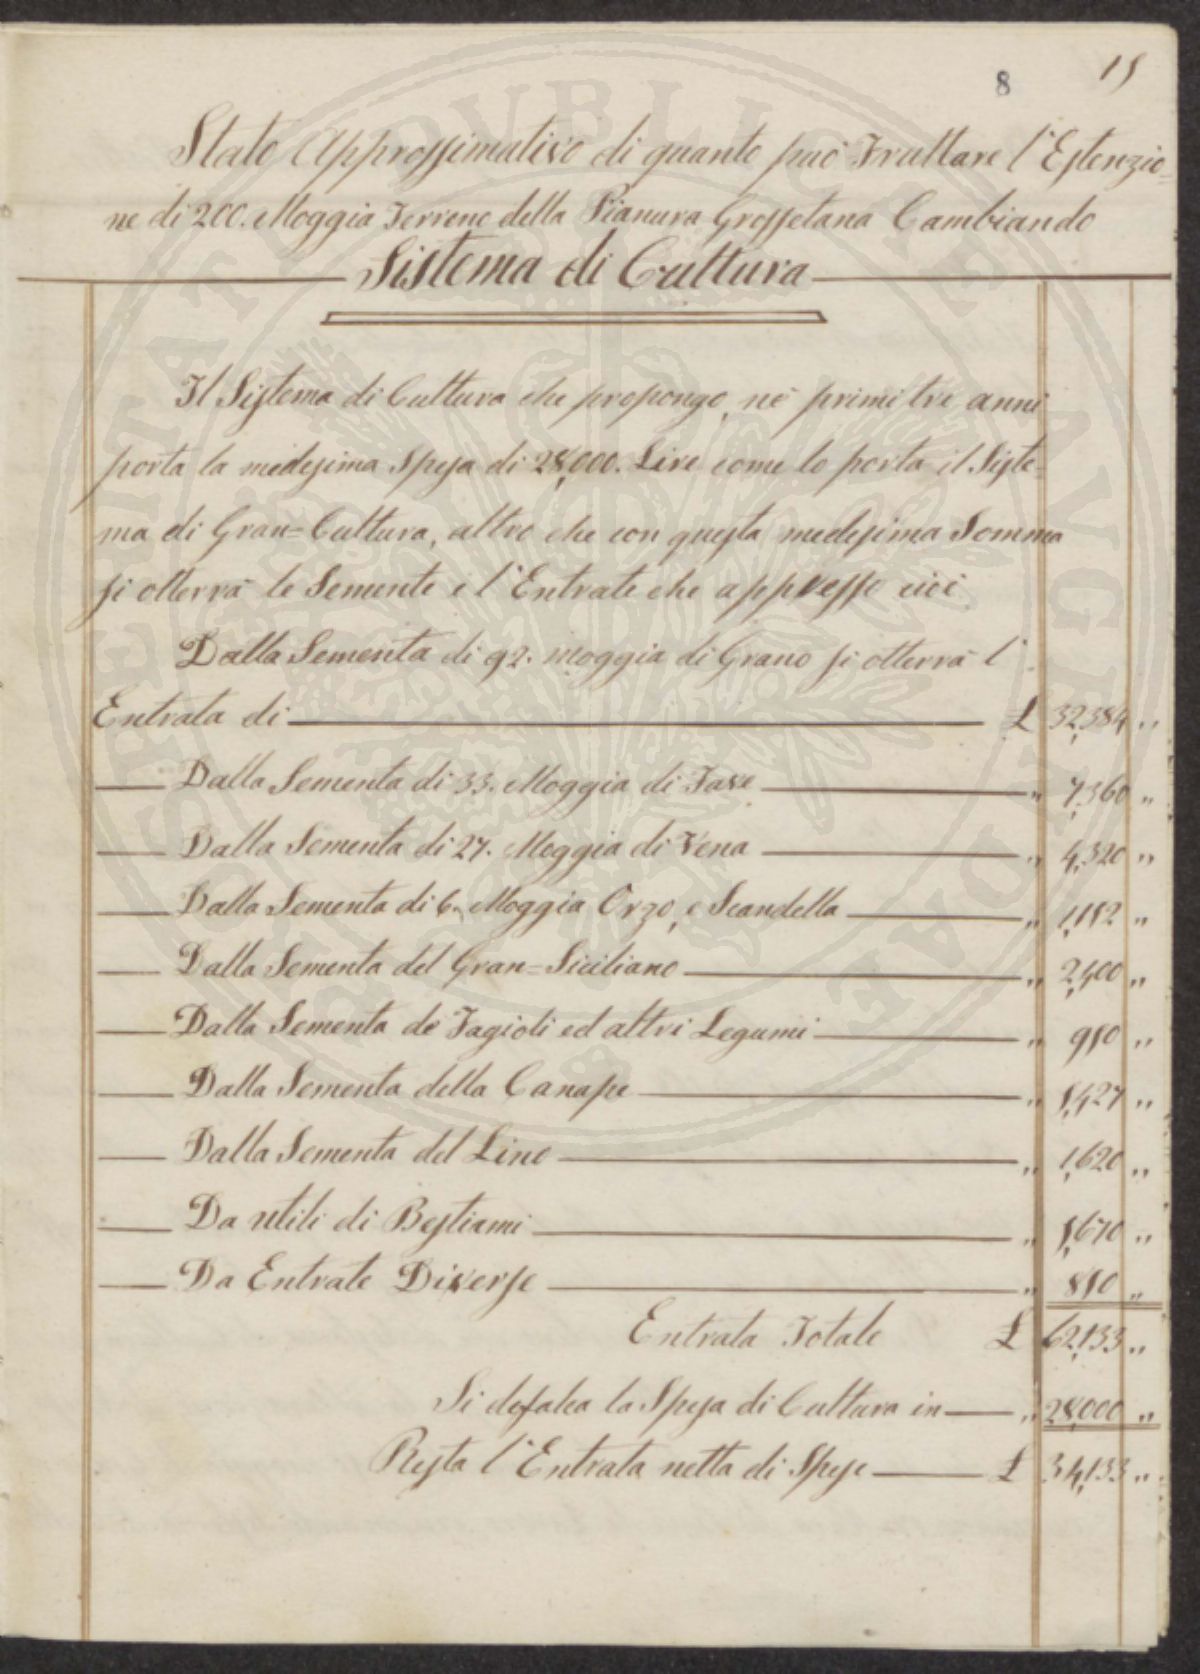 8
15
Stato Approssimativo di quanto può Fruttare l'Estenzio=
ne di 200. Moggia Terreno della Pianura Grossetana Cambiando
Sistema di Cultura
Il Sistema di Cultura che propongo, ne' primi tre anni
porta la medesima Spesa di 28,000. Lire come lo porta il Siste=
ma di Gran=Cultura, altro che con questa medesima Somma
si otterrà le Semente e l'Entrate che appresso cioè
Dalla Sementa di 92. Moggia di Grano si otterrà l'
Entrata di £ 32,384 ,,
Dalla Sementa di 33. Moggia di Fave ,, 7,360 ,,
Dalla Sementa di 27. Moggia di Vena ,, 4,320 ,,
Dalla Sementa di 6. Moggia Orzo, e Scandella ,, 1,152 ,,
Dalla Sementa del Gran=Siciliano ,, 2,400 ,,
Dalla Sementa de' Fagioli ed altri Legumi ,, 950 ,,
Dalla Sementa della Canape ,, 5,427 ,,
Dalla Sementa del Lino ,, 1,620 ,,
Da utili di Bestiami ,, 5,670 ,,
Da Entrate Diverse ,, 850 ,,
Entrata Totale £ 62,133 ,,
Si defalca la Spesa di Cultura in ,, 28,000 ,,
Resta l'Entrata netta di Spese £ 34,133 ,,
PROSPERITATI PVBLICAE AVGENDAE